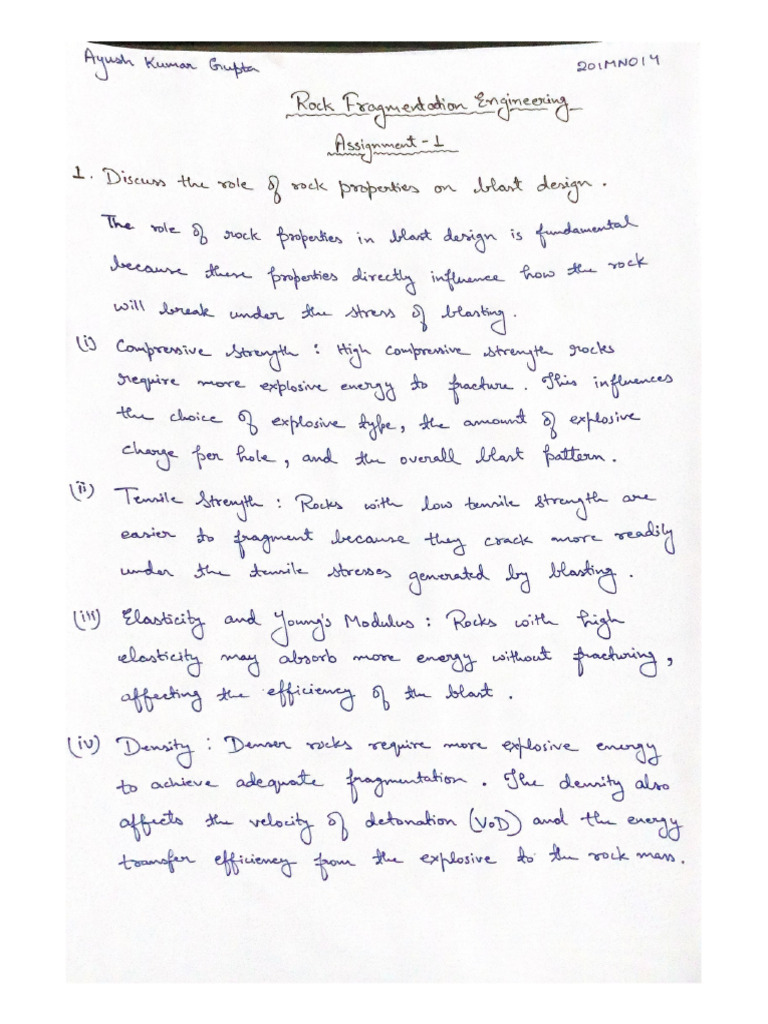 Ayush Kumar Gupta 201MN014
Rock Fragmentation Engineering
Assignment-1
1. Discuss the role of rock properties on blast design.
The role of rock properties in blast design is fundamental
because these properties directly influence how the rock
will break under the stress of blasting.
(i) Compressive Strength : High compressive strength rocks
require more explosive energy to fracture. This influences
the choice of explosive type, the amount of explosive
charge per hole, and the overall blast pattern.
(ii) Tensile Strength : Rocks with low tensile strength are
easier to fragment because they crack more readily
under the tensile stresses generated by blasting.
(iii) Elasticity and Young's Modulus : Rocks with high
elasticity may absorb more energy without fracturing,
affecting the efficiency of the blast.
(iv) Density : Denser rocks require more explosive energy
to achieve adequate fragmentation. The density also
affects the velocity of detonation (VoD) and the energy
transfer efficiency from the explosive to the rock mass.